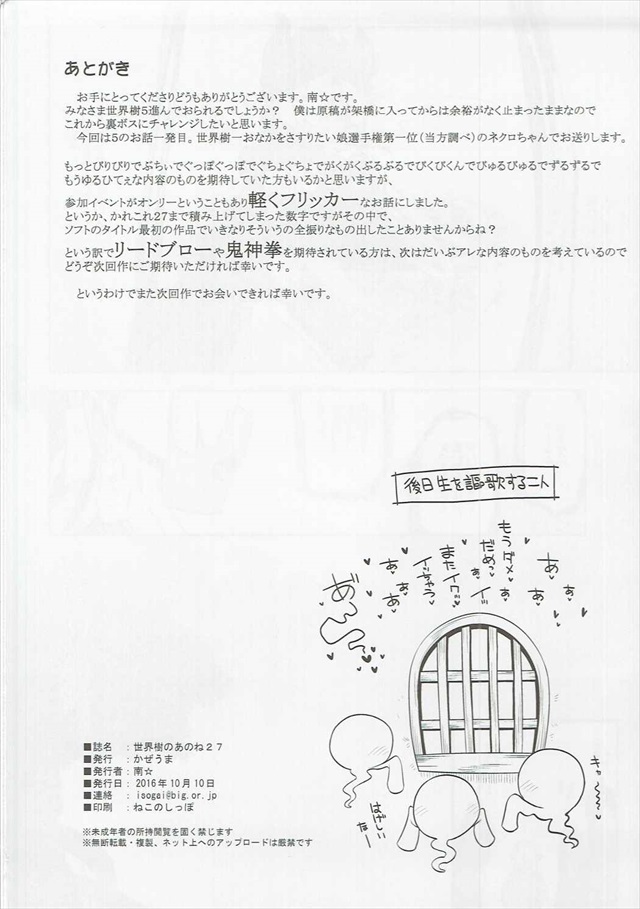 あとがき
お手にとってくださりどうもありがとうございます。南☆です。
みなさま世界樹5進んでおられるでしょうか？　僕は原稿が架橋に入ってからは余裕がなく止まったままなので
これから裏ボスにチャレンジしたいと思います。
今回は5のお話一発目。世界樹一おなかをさすりたい娘選手権第一位(当方調べ)のネクロちゃんでお送りします。
もっとびりびりでぷちぃでぐっぽぐっぽでぐちょぐちょでがくがくぷるぷるでびくびくんでびゅるびゅるでずるずるで
もうゆるひてぇな内容のものを期待していた方もいるかと思いますが、
参加イベントがオンリーということもあり軽くフリッカーなお話にしました。
というか、かれこれ27まで積み上げてしまった数字ですがその中で、
ソフトのタイトル最初の作品でいきなりそういうの全振りなもの出したことありませんからね？
という訳でリードブローや鬼神拳を期待されている方は、次はだいぶアレな内容のものを考えているので
どうぞ次回作にご期待いただければ幸いです。
というわけでまた次回作でお会いできれば幸いです。
後日生を謳歌する二人
あぁ♥
あぁ♥
もうダメ♥
だめっ♥
ぁ
イッ
またイクッ
イッちゃう
あぁ
あぁ
あ゛ん
キャー
はげしいなー
■誌名　：世界樹のあのね２７
■発行　：かぜうま
■発行者：南☆
■発行日：2016年10月10日
■連絡　：isogai@big.or.jp
■印刷　：ねこのしっぽ
※未成年者の所持閲覧を固く禁じます
※無断転載・複製、ネット上へのアップロードは厳禁です